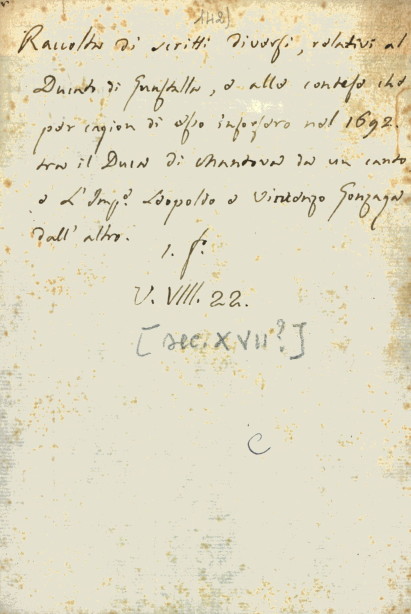 1421
Raccolta di scritti diversi, relativi al
Ducato di Guastalla, e alle contese che
per cagion di esso insorsero nel 1692.
tra il Duca di Mantova da un canto
e L'Imp.e Leopoldo e Vincenzo Gonzaga
dall'altro.
1. f.o
V. VIII. 22.
[sec. XVII?]
C